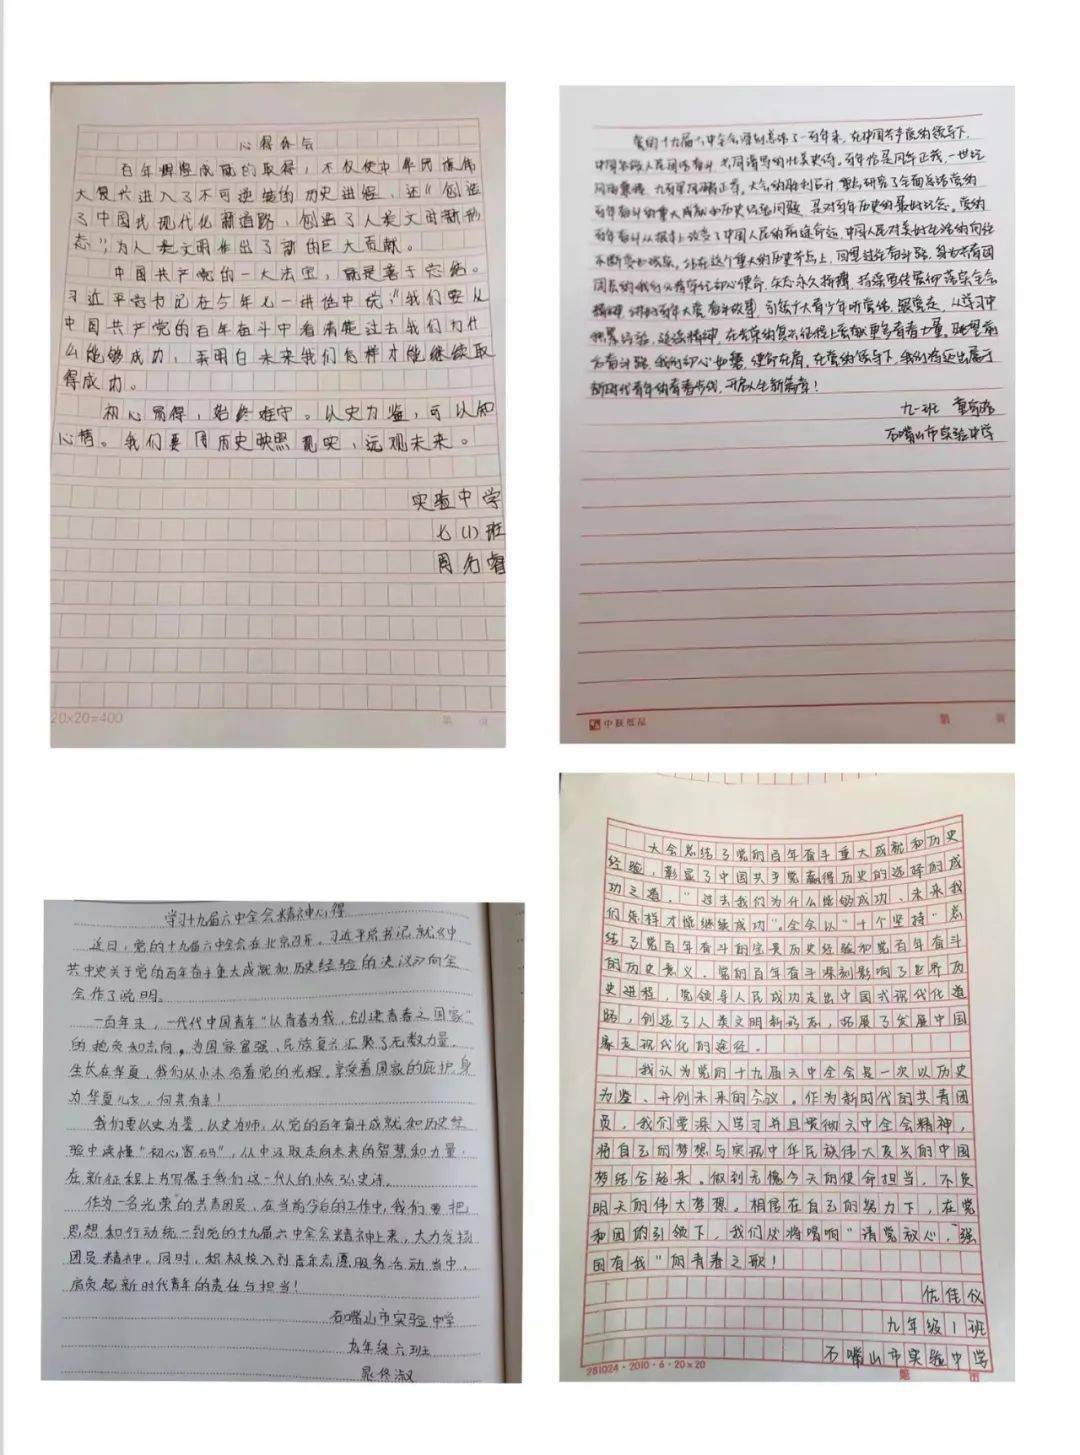 心得体会
百年辉煌成就的取得，不仅使中华民族伟
大复兴进入了不可逆转的历史进程，还“创造
了中国式现代化新道路，创造了人类文明新形
态”，为人类文明作出了新的巨大贡献。
中国共产党的一大法宝，就是善于总结。
习近平总书记在今年七一讲话中说：“我们要从
中国共产党的百年奋斗中看清楚过去我们为什
么能够成功，弄明白未来我们怎样才能继续取
得成功。
初心易得，始终难守。以史为鉴，可以知
心情。我们要用历史映照现实，远观未来。
实验中学
七(1)班
周名睿
20×20=400
第 页
党的十九届六中全会深刻总结了一百年来，在中国共产党的领导下，
中国各族人民团结奋斗，共同谱写的壮美史诗。百年恰是风华正茂，一世纪
大会的胜利召开，重点研究了全面总结党的
百年奋斗的重大成就和历史经验问题，是对百年历史的最好纪念。党的
百年奋斗从根本上改变了中国人民的前途命运，中国人民对美好生活的向往
不断变为现实。站在这个重大的历史节点上，回望过往奋斗路，身为共青团
团员的我们必将牢记初心使命，
精神，讲好百年大党奋斗故事，引领广大青少年听党话，跟党走，从学习中
积累经验，延续精神，在民族的复兴征程上贡献更多青春力量。眺望前
方奋斗路，我们初心如磐，使命在肩，在党的领导下，我们将迈出属于
新时代青年的青春步伐，开启人生新篇章！
九一班
石嘴山市实验中学
中联纸品
第 页
学习十九届六中全会精神心得
近日，党的十九届六中全会在北京召开。习近平总书记就《中
共中央关于党的百年奋斗重大成就和历史经验的决议》向全
会作了说明。
一百年来，一代代中国青年“以青春为我，创建青春之国家”
的抱负和志向，为国家富强、民族复兴汇聚了无数力量，
生长在华夏，我们从小沐浴着党的光辉，享受着国家的庇护，身
为华夏儿女，何其有幸！
我们要以史为鉴，以史为师，从党的百年奋斗成就和历史经
验中读懂“初心密码”，从中汲取走向未来的智慧和力量，
在新征程上书写属于我们这一代人的恢弘史诗。
作为一名光荣的共青团员，在当前今后的工作中，我们要把
思想和行动统一到党的十九届六中全会精神上来，大力发扬
团员精神。同时，积极投入到青年志愿服务活动当中，
肩负起新时代青年的责任与担当！
石嘴山市实验中学
九年级六班
晁佟淑
大会总结了党的百年奋斗重大成就和历史
经验，彰显了中国共产党赢得历史的选择的成
功之道，“过去我们为什么能够成功、未来我
们怎样才能继续成功”。全会以“十个坚持”总
结了党百年奋斗的宝贵历史经验和党百年奋斗
的历史意义，党的百年奋斗深刻影响了世界历
史进程，党领导人民成功走出中国式现代化道
路，创造了人类文明新形态，拓展了发展中国
家走现代化的途径。
我认为党的十九届六中全会是一次以历史
为鉴、开创未来的会议。作为新时代的共青团
员，我们要深入学习并且贯彻六中全会精神，
将自己的梦想与实现中华民族伟大复兴的中国
梦结合起来。做到无愧今天的使命担当，不负
明天的伟大梦想。相信在自己的努力下，在党
和团的引领下，我们必将唱响“请党放心，强
国有我”的青春之歌！
佐佳仪
九年级1班
石嘴山市实验中学
281024·2010·6·20×20
第 页